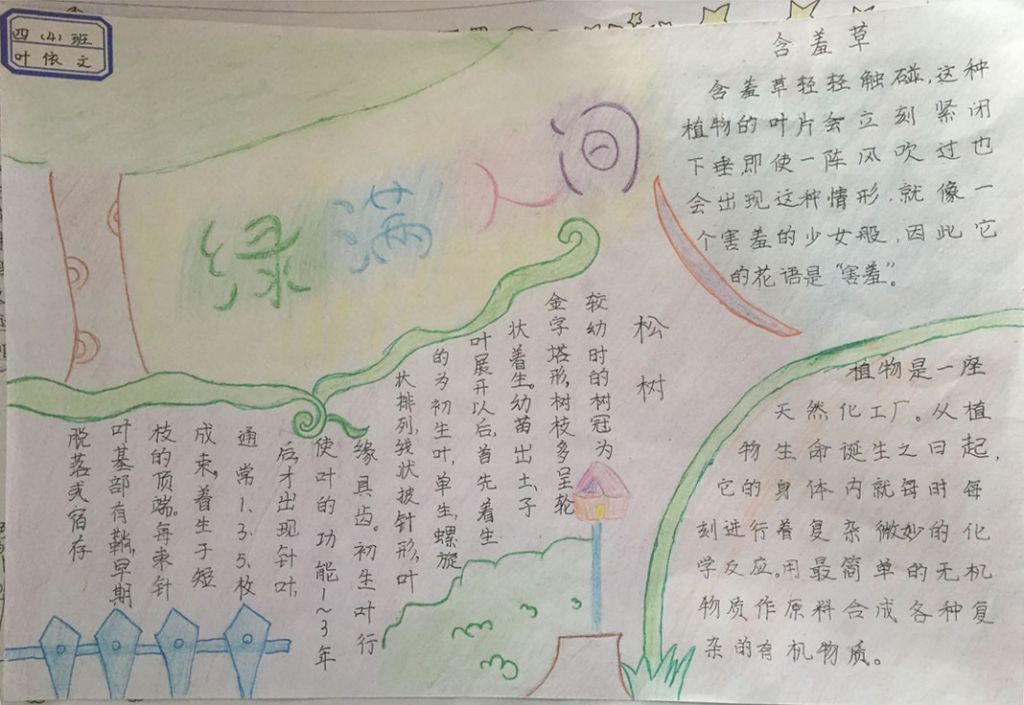 四(4)班
叶依文
绿满人间
含羞草
含羞草轻轻触碰,这种
植物的叶片会立刻紧闭
下垂,即使一阵风吹过也
会出现这种情形,就像一
个害羞的少女般,因此它
的花语是“害羞”。
松树
较幼时的树冠为
金字塔形,树枝多呈轮
状着生。幼苗出土,子
叶展开以后,首先着生
的为初生叶,单生,螺旋
状排列,线状披针形,叶
缘具齿。初生叶行
使叶的功能1~3年
后,才出现针叶,
通常1、3、5、枚
成束,着生于短
枝的顶端。每束针
叶基部有鞘,早期
脱落或宿存
植物是一座
天然化工厂。从植
物生命诞生之日起,
它的身体内就每时每
刻进行着复杂微妙的化
学反应。用最简单的无机
物质作原料合成各种复
杂的有机物质。